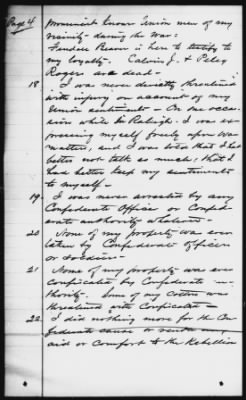 Page 4
prominent known Union men of my
vicinity - during the War:
Fendall Beavers is here to testify to
my loyalty. Calvin J. & Peleg
Rogers are dead -
18 I was never directly threatened
with injury on account of my
Union sentiments - On one occa-
sion while in Raleigh. I was ex-
pressing myself freely upon War
matters, and I was told that I had
better not talk so much; that I
had better keep my sentiments
to myself -
19. I was never arrested by any
Confederate Officer or Confed-
erate authority whatever -
20 None of my property was ever
taken by Confederate officers
or soldiers -
21 None of my property was ever
confiscated by Confederate au-
thority. Some of my Cotton was
threatened with Confiscation -
22. I did nothing more for the Con-
federate cause or render any
aid or comfort to the Rebellion